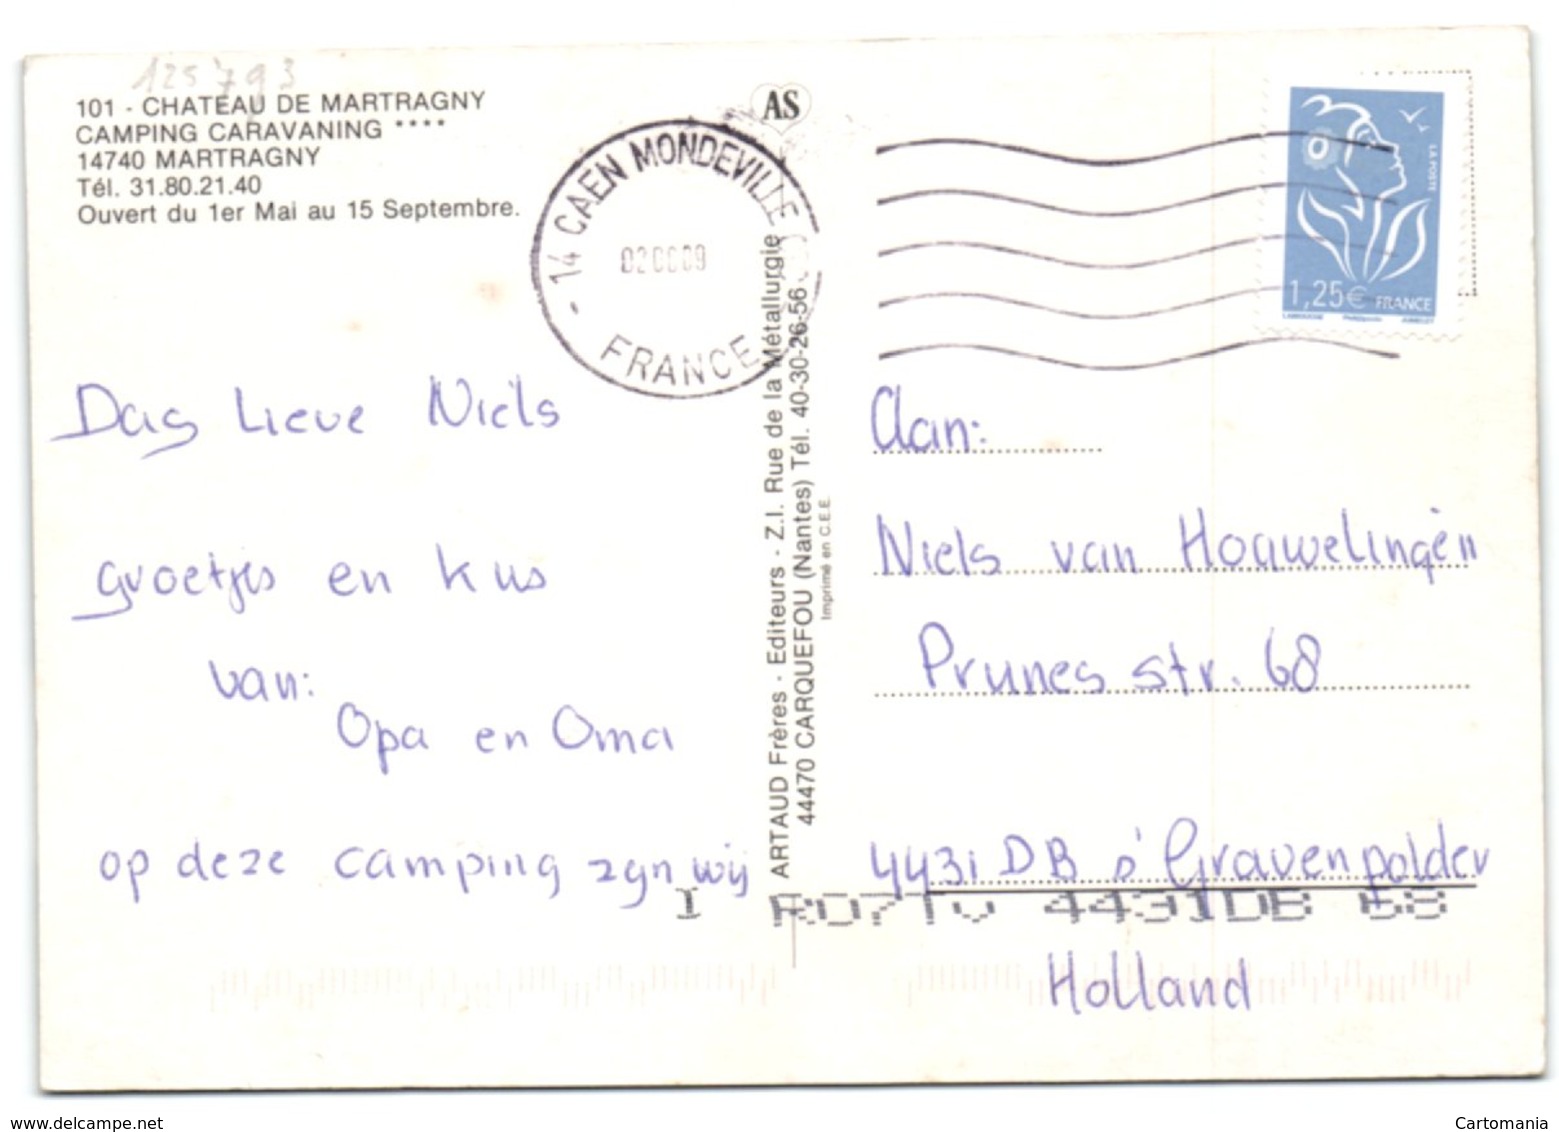 125793
101 - CHATEAU DE MARTRAGNY
CAMPING CARAVANING ****
14740 MARTRAGNY
Tél. 31.80.21.40
Ouvert du 1er Mai au 15 Septembre.
AS
- 14 CAEN MONDEVILLE
FRANCE
LA POSTE
1,25€ FRANCE
Dag Lieve Niels
groetjes en kus
van:
Opa en Oma
op deze camping zyn wij
ARTAUD Frères - Editeurs - Z.I. Rue de la Métallurgie
44470 CARQUEFOU (Nantes) Tél. 40-30-26-56
Imprimé en C.E.E.
Aan:
Niels van Houwelingen
Prunes str. 68
4431 DB s' Gravenpolder
4431DB 68
Holland
www.delcampe.net
Cartomania